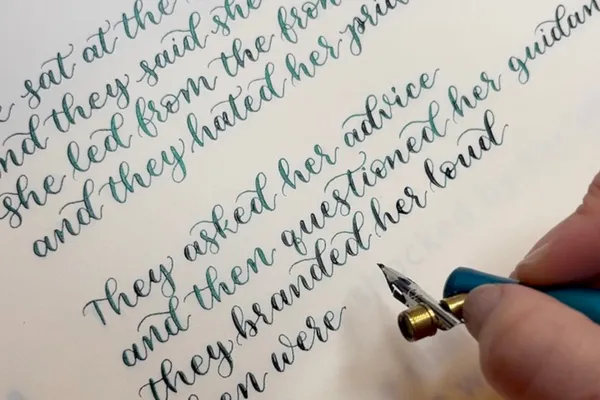 sat at the
and they said she
she led from the fron
and they hated her prid
They asked her advice
and then questioned her guidan
they branded her loud
en were